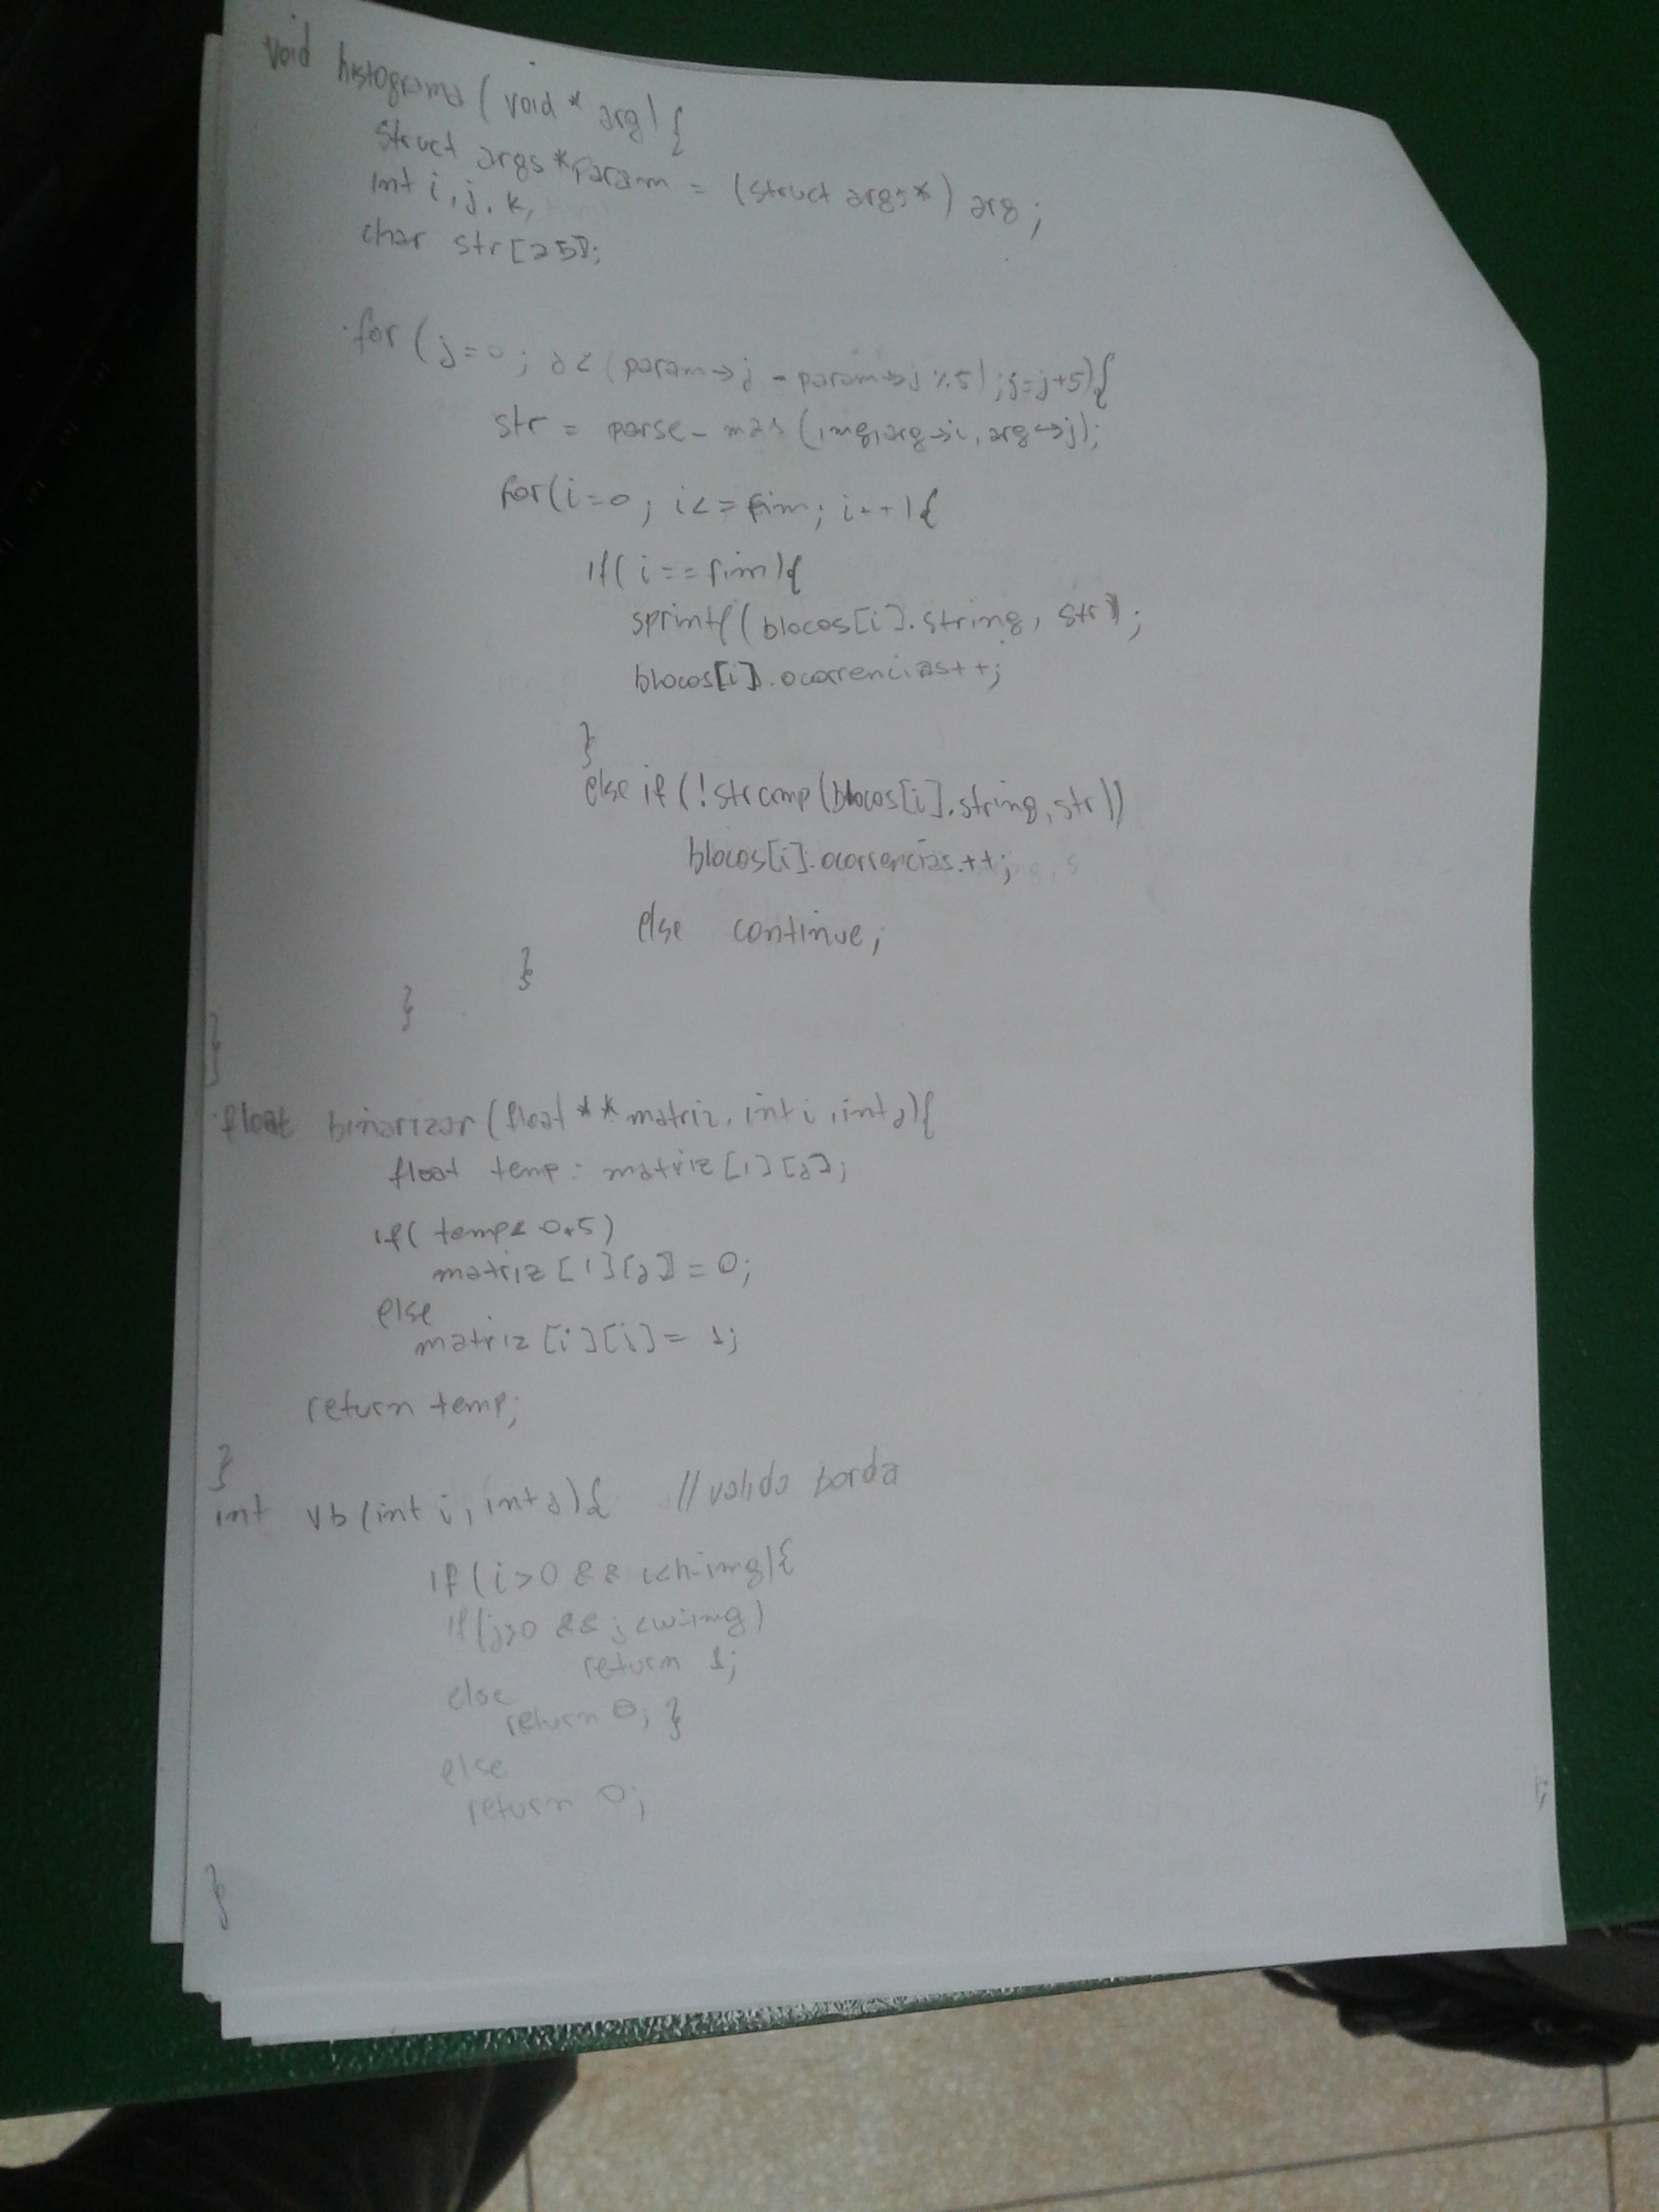 void histograma (void * arg) {
struct args *param = (struct args *) arg;
int i, j, k;
char str[25];
for (j=0; j< (param->j - param->j %5); j=j+5){
str = parse-mas (img, arg->i, arg->j);
for (i=0; i<=fim; i++){
if (i==fim){
sprintf (blocos[i].string, str);
blocos[i].ocorrencias++;
}
else if (!strcmp (blocos[i].string, str))
blocos[i].ocorrencias++;
else continue;
}
}
}
float binarizar (float ** matriz, int i, int j){
float temp = matriz[i][j];
if (temp < 0.5)
matriz [i][j] = 0;
else
matriz [i][j] = 1;
return temp;
}
int vb (int i, int j){ //valida borda
if (i>0 && i<h-img){
if (j>0 && j<w-img)
return 1;
else
return 0; }
else
return 0;
}